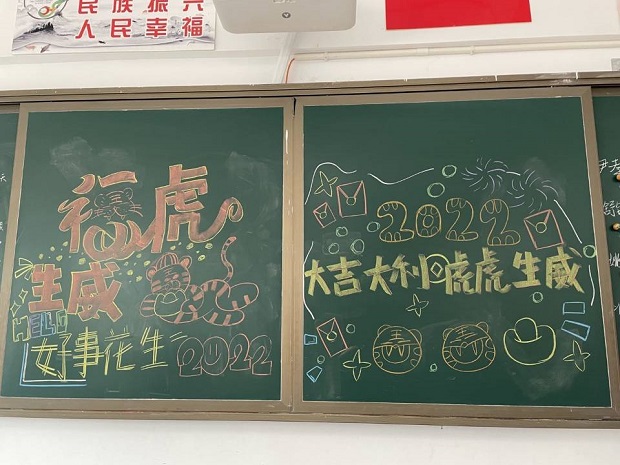 民族振兴
人民幸福
福虎
生威
HELLO
好事花生 2022
2022
大吉大利虎虎生威